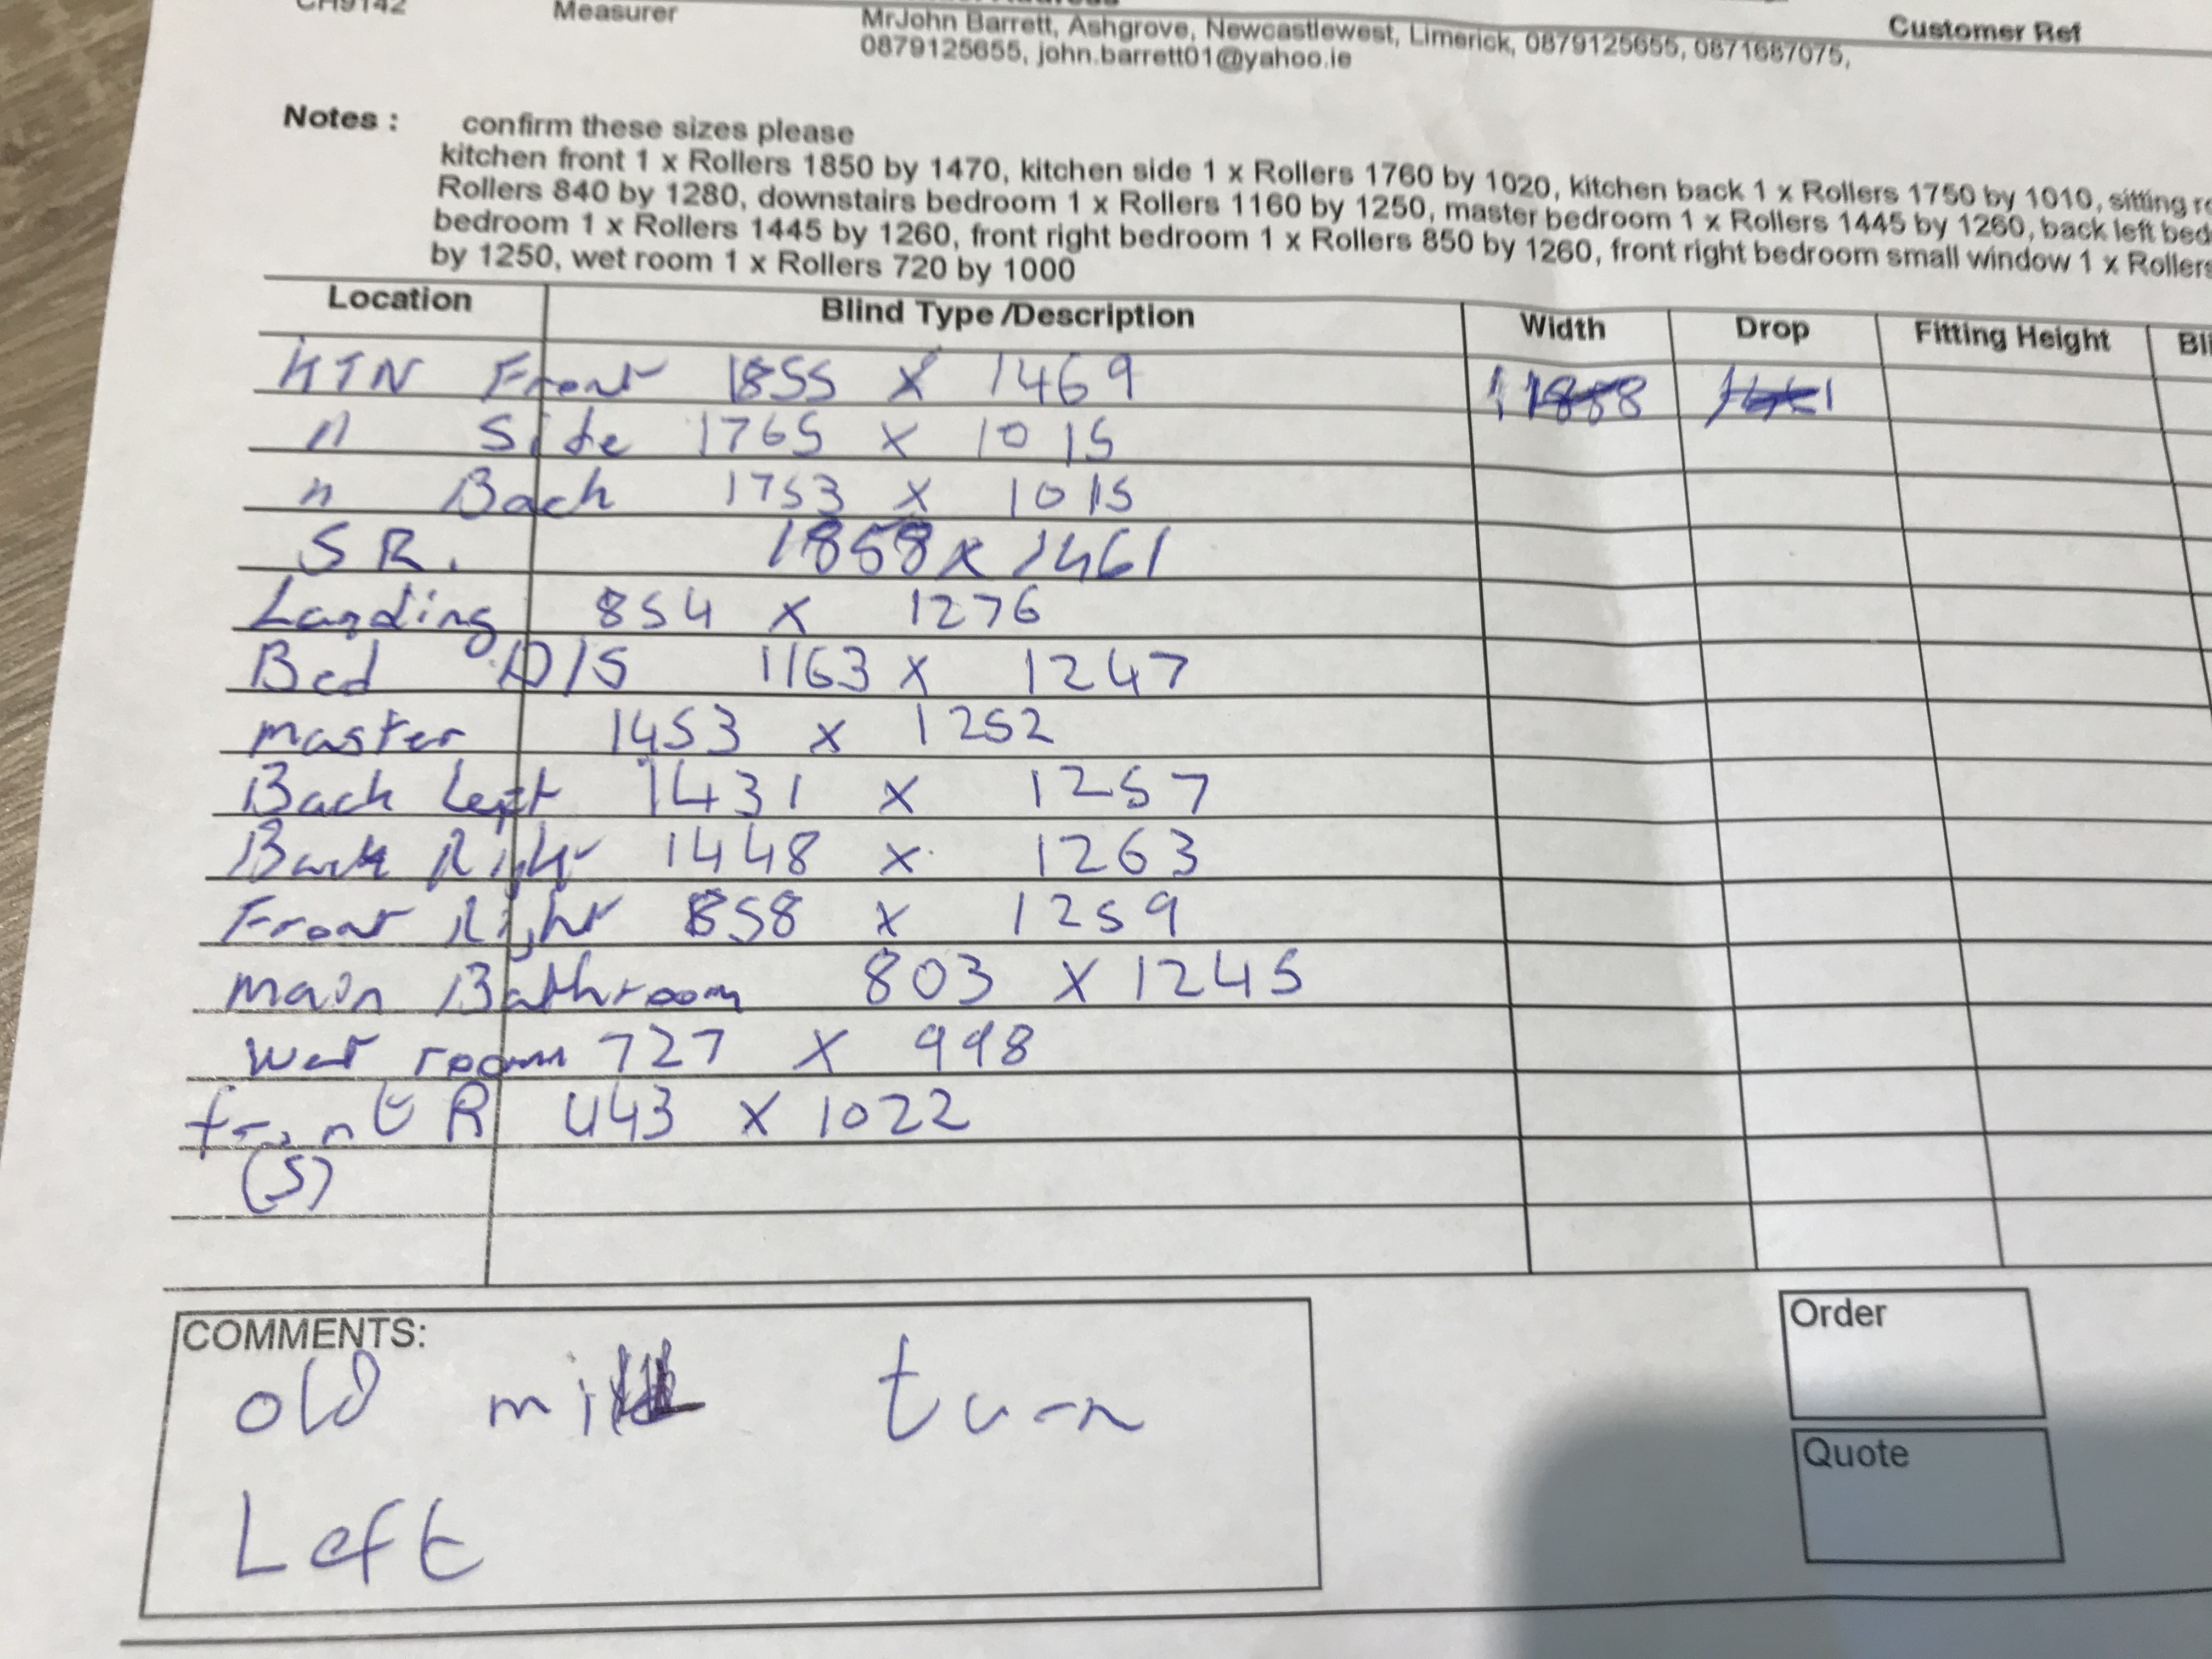 CH9142 Measurer MrJohn Barrett, Ashgrove, Newcastlewest, Limerick, 0879125655, 0871687075, Customer Ref
0879125655, john.barrett01@yahoo.ie
Notes : confirm these sizes please
kitchen front 1 x Rollers 1850 by 1470, kitchen side 1 x Rollers 1760 by 1020, kitchen back 1 x Rollers 1750 by 1010, sitting
Rollers 840 by 1280, downstairs bedroom 1 x Rollers 1160 by 1250, master bedroom 1 x Rollers 1445 by 1260, back left
bedroom 1 x Rollers 1445 by 1260, front right bedroom 1 x Rollers 850 by 1260, front right bedroom small window 1 x Rollers
by 1250, wet room 1 x Rollers 720 by 1000
Location Blind Type /Description Width Drop Fitting Height
KTN Front 1855 X 1469
" Side 1765 x 1015
" Back 1753 x 1015
S R. 1858 x 1461
Landing 854 x 1276
Bed D/S 1163 x 1247
master 1453 x 1252
Back Left 1431 x 1257
Back Right 1448 x 1263
Front Right 858 x 1259
Main Bathroom 803 X 1245
wet room 727 X 998
front R 443 X 1022
(S)
COMMENTS:
old mill turn
Left
Order
Quote